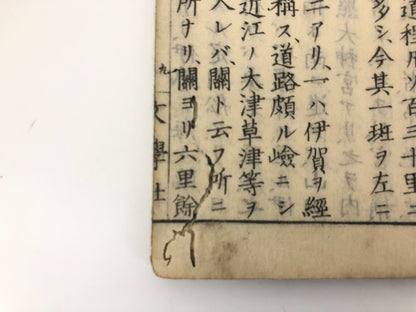 道程凡ソ百三十里ニ
多シ、今其一班ヲ左ニ
ニアリ、一ハ伊賀ヲ經
稱ス、道路頗ル嶮ニシ
近江ノ大津草津等ヲ
入レバ、關ト云フ所ニ
所ナリ、關ヨリ六里餘
九
文學社